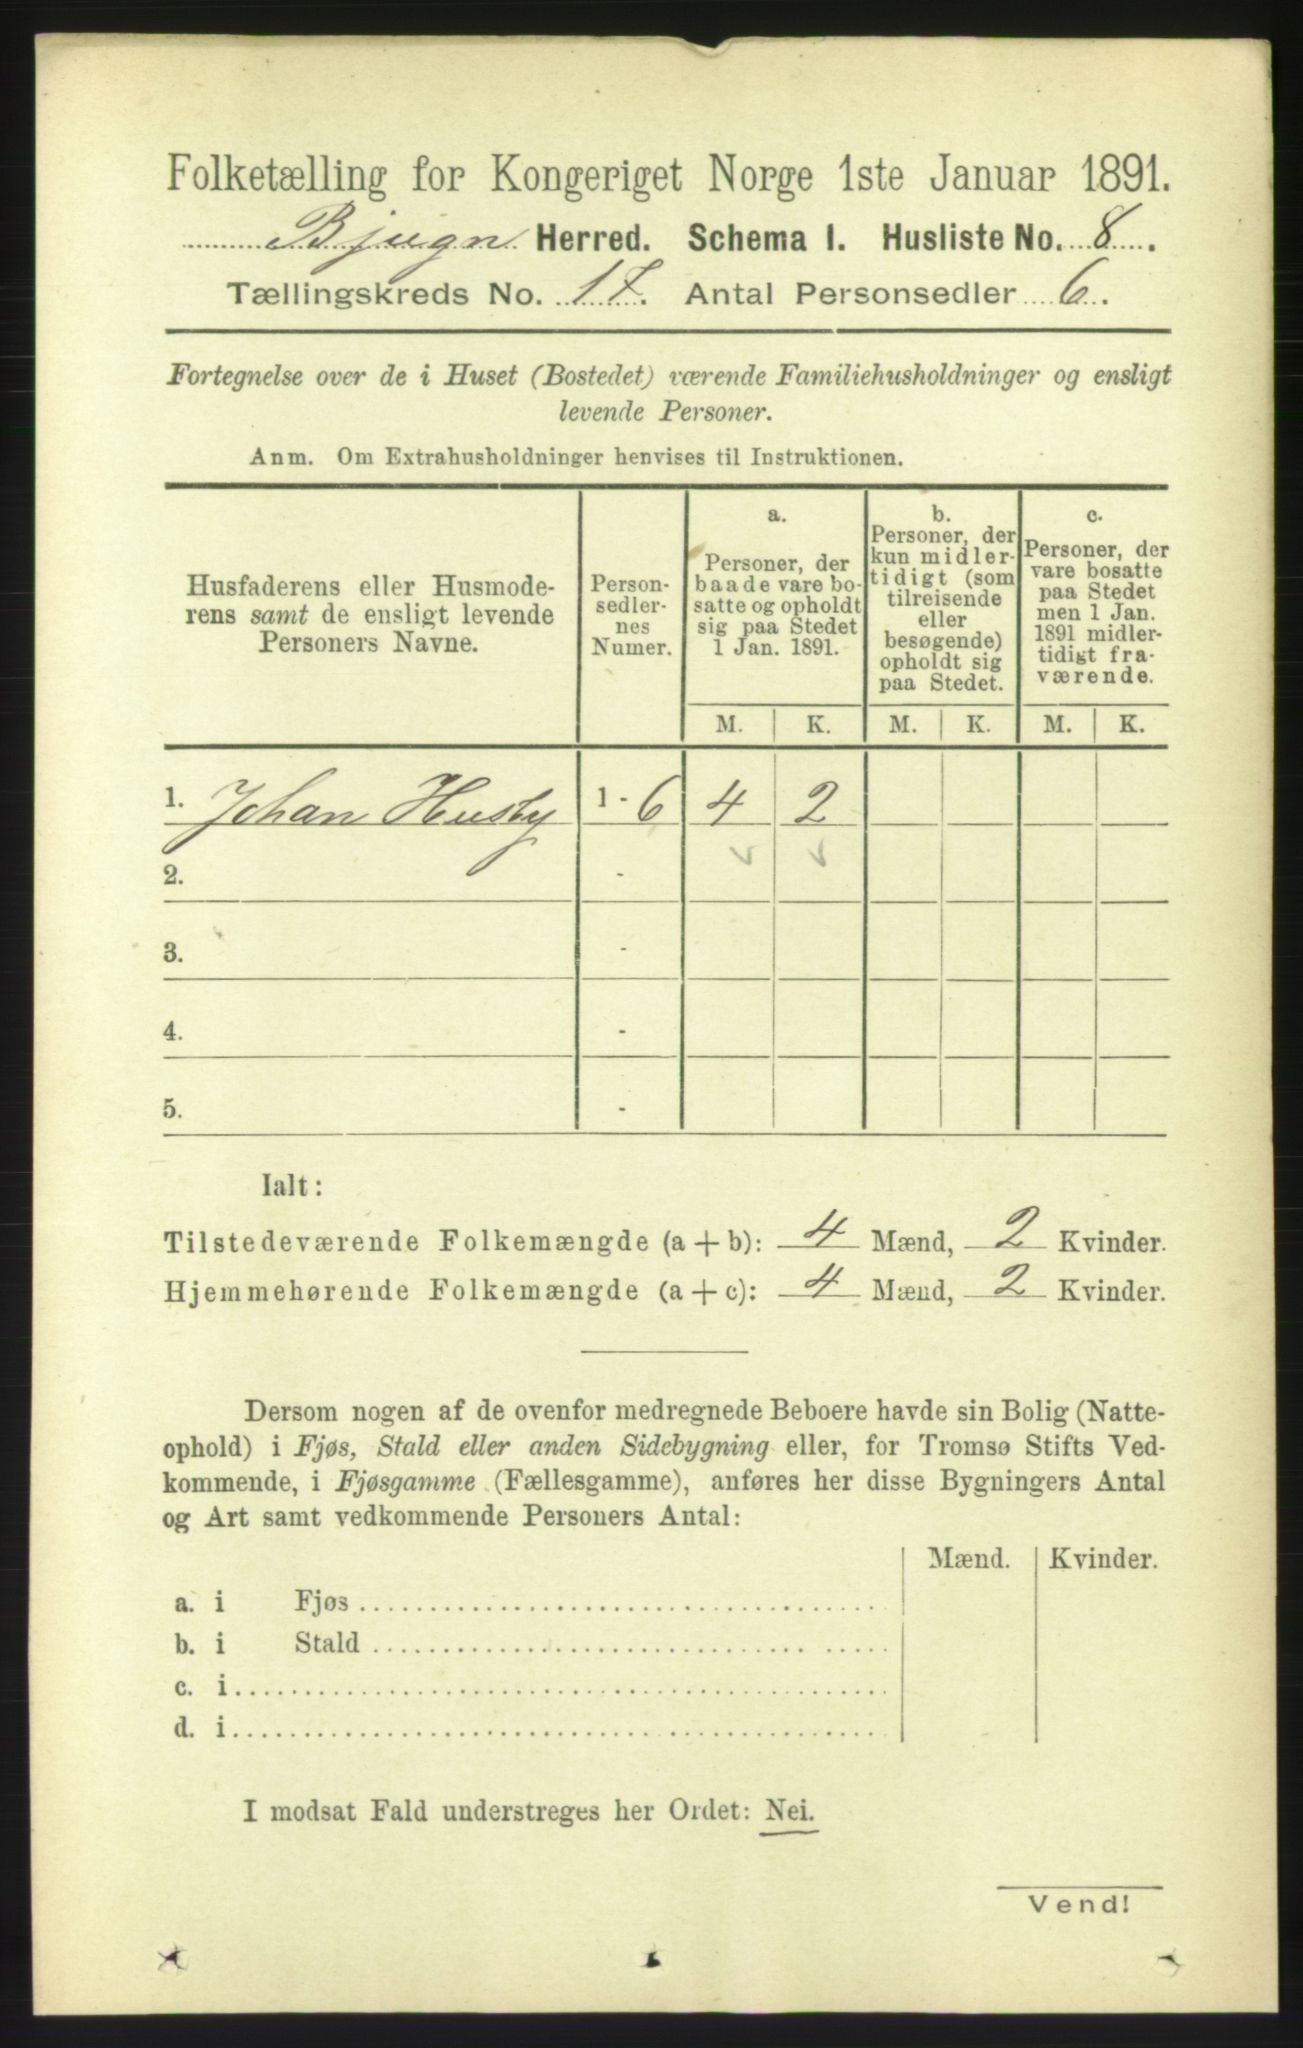 Folketælling for Kongeriget Norge 1ste Januar 1891.
Bjugn Herred. Schema I. Husliste No. 8.
Tællingskreds No. 17. Antal Personsedler 6.
Fortegnelse over de i Huset (Bostedet) værende Familiehusholdninger og ensligt
levende Personer.
Anm. Om Extrahusholdninger henvises til Instruktionen.
Husfaderens eller Husmode-
rens samt de ensligt levende
Personers Navne.
Person-
sedler-
nes
Numer.
a.
Personer, der
baade vare bo-
satte og opholdt
sig paa Stedet
1 Jan. 1891.
b.
Personer, der
kun midler-
tidigt (som
tilreisende
eller
besøgende)
opholdt sig
paa Stedet.
c.
Personer, der
vare bosatte
paa Stedet
men 1 Jan.
1891 midler-
tidigt fra-
værende.
M. K. M. K. M. K.
1. Johan Husby 1 - 6 4 2
2. -
3. -
4. -
5. -
Ialt:
Tilstedeværende Folkemængde (a + b): 4 Mænd, 2 Kvinder.
Hjemmehørende Folkemængde (a + c): 4 Mænd, 2 Kvinder.
Dersom nogen af de ovenfor medregnede Beboere havde sin Bolig (Natte-
ophold) i Fjøs, Stald eller anden Sidebygning eller, for Tromsø Stifts Ved-
kommende, i Fjøsgamme (Fællesgamme), anføres her disse Bygningers Antal
og Art samt vedkommende Personers Antal:
Mænd. Kvinder.
a. i Fjøs
b. i Stald
c. i
d. i
I modsat Fald understreges her Ordet: Nei.
Vend!